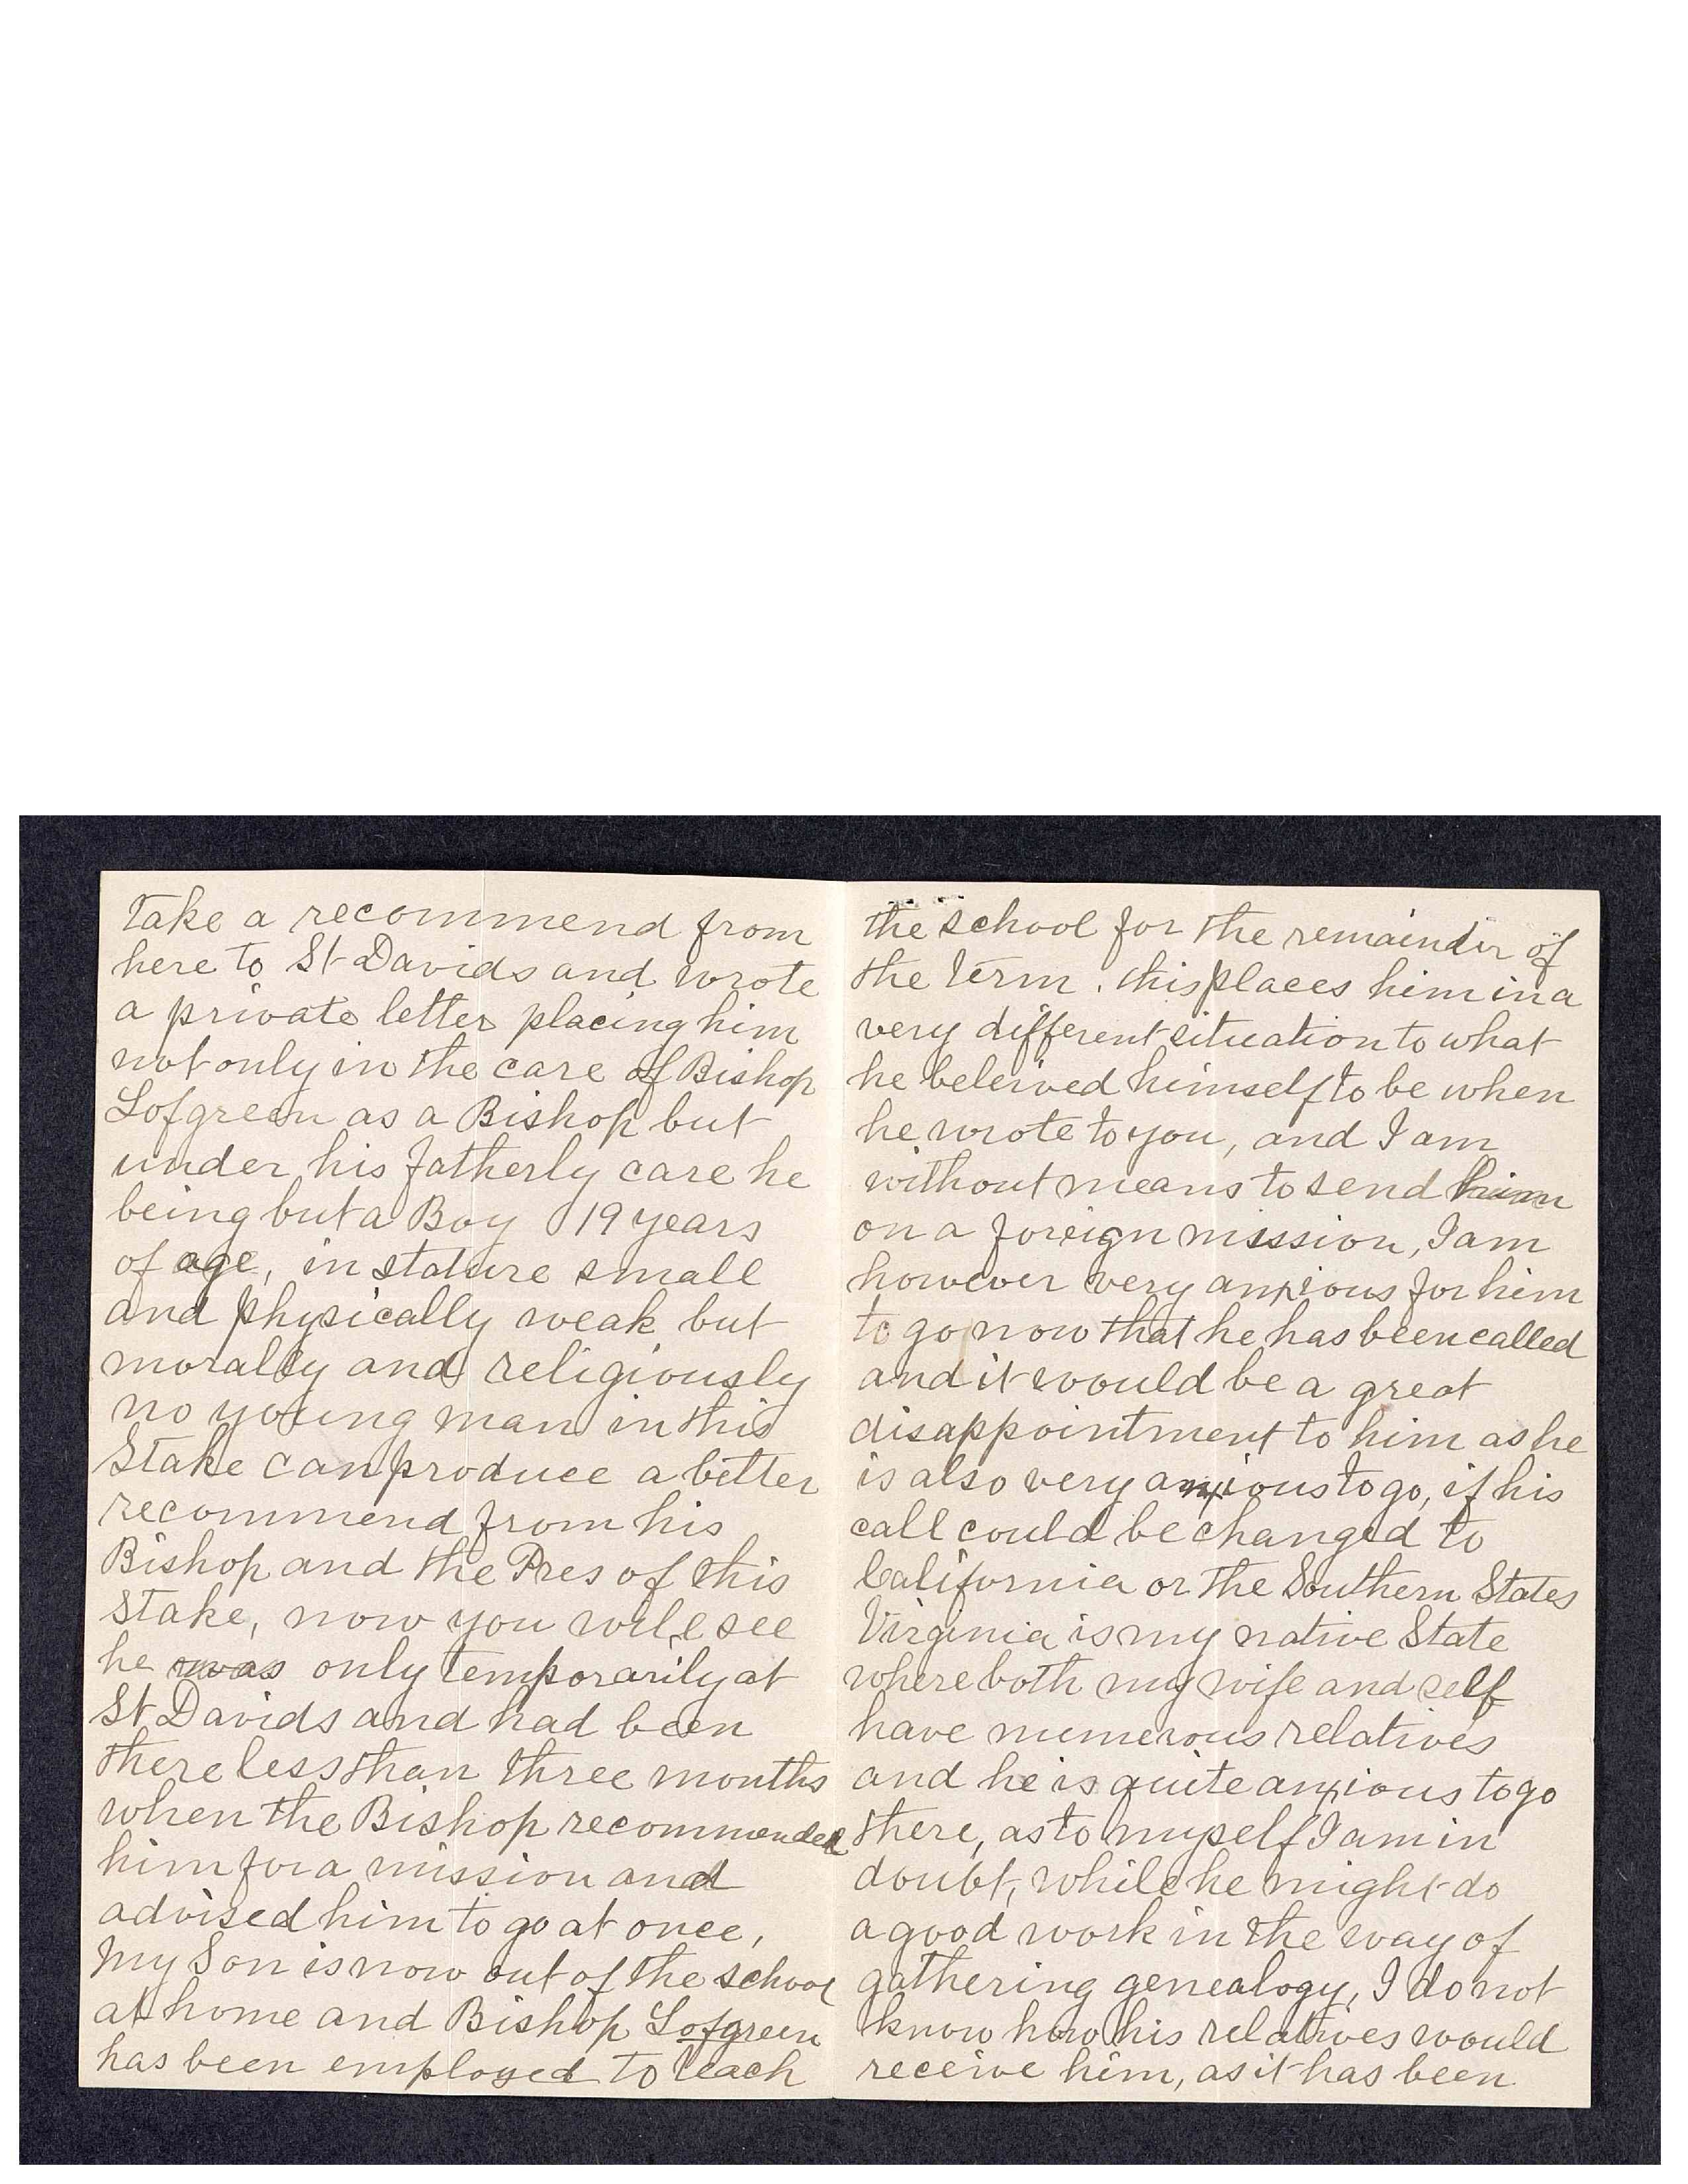 take a recommend from
here to St Davids and wrote
a private letter placing him
not only in the care of Bishop
Lofgreen as a Bishop but
under his fatherly care he
being but a Boy 19 years
of age, in stature small
and physically weak but
morally and religiously
no young man in this
Stake can produce a better
recommend from his
Bishop and the Pres of this
Stake, now you will see
he was only temporarily at
St Davids and had been
there less than three months
when the Bishop recommended
him for a mission and
advised him to go at once,
My Son is now out of the school
at home and Bishop Lofgreen
has been employed to teach
the school for the remainder of
the term. this places him in a
very different situation to what
he beleived himself to be when
he wrote to you, and I am
without means to send him
on a foreign misssion, I am
however very anxious for him
to go now that he has been called
and it would be a great
disappointment to him as he
is also very anxious to go, if his
call could be changed to
California or the Southern States
Virginia is my native State
where both my wife and self
have numerous relatives
and he is quite anxious to go
there, as to myself I am in
doubt, while he might do
a good work in the way of
gathering genealogy, I do not
know how his relatives would
receive him, as it has been